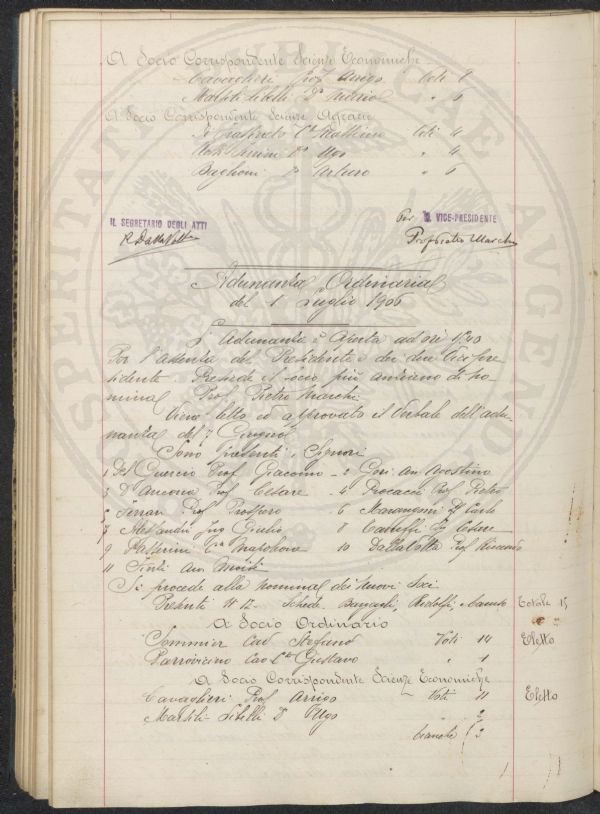 A Socio Corrispondente Scienze Economiche
Cavaglieri Prof Arrigo Voti 8
Marsili Libelli Dr " 6
A Socio Corrispondente Scienze Agrarie
Voti 4
Dr Ugo " 4
Baglioni Dr Arturo " 6
IL SEGRETARIO DEGLI ATTI
per IL VICE-PRESIDENTE
Prof Pietro Marchi
Adunanza Ordinaria
del 1 Luglio 1906
L'Adunanza è aperta ad ore
Per l'assenza del Presidente e dei due Vice Pre
sidente. Presiede il socio più anziano di no
mina Prof. Pietro Marchi
Viene letto ed approvato il Verbale dell'adu
nanza del 7 Giugno
Sono presenti i Signori
1 Del Guercio Prof Giacomo - 2 Gori Avv Agostino
3 D'Ancona Prof Cesare - 4 Procacci Prof Pietro
5 Ferrari Prof Prospero 6 Marangoni Prof Carlo
7 Alessandri Ing Giulio 8 Cesare
9 Passerini 10 Dalla Volta Prof Riccardo
11 Avv
Si procede alla nomina dei nuovi Soci
Presenti N 12 - Schede Ridolfi, Totale 15
A Socio Ordinario
Sommier Cav Stefano Voti 14 Eletto
Parravicino Cav Gustavo " 1
A Socio Corrispondente Scienze Economiche
Cavaglieri Prof Arrigo - Voti 11 Eletto
Marsili-Libelli Dr Ugo " 2
bianche